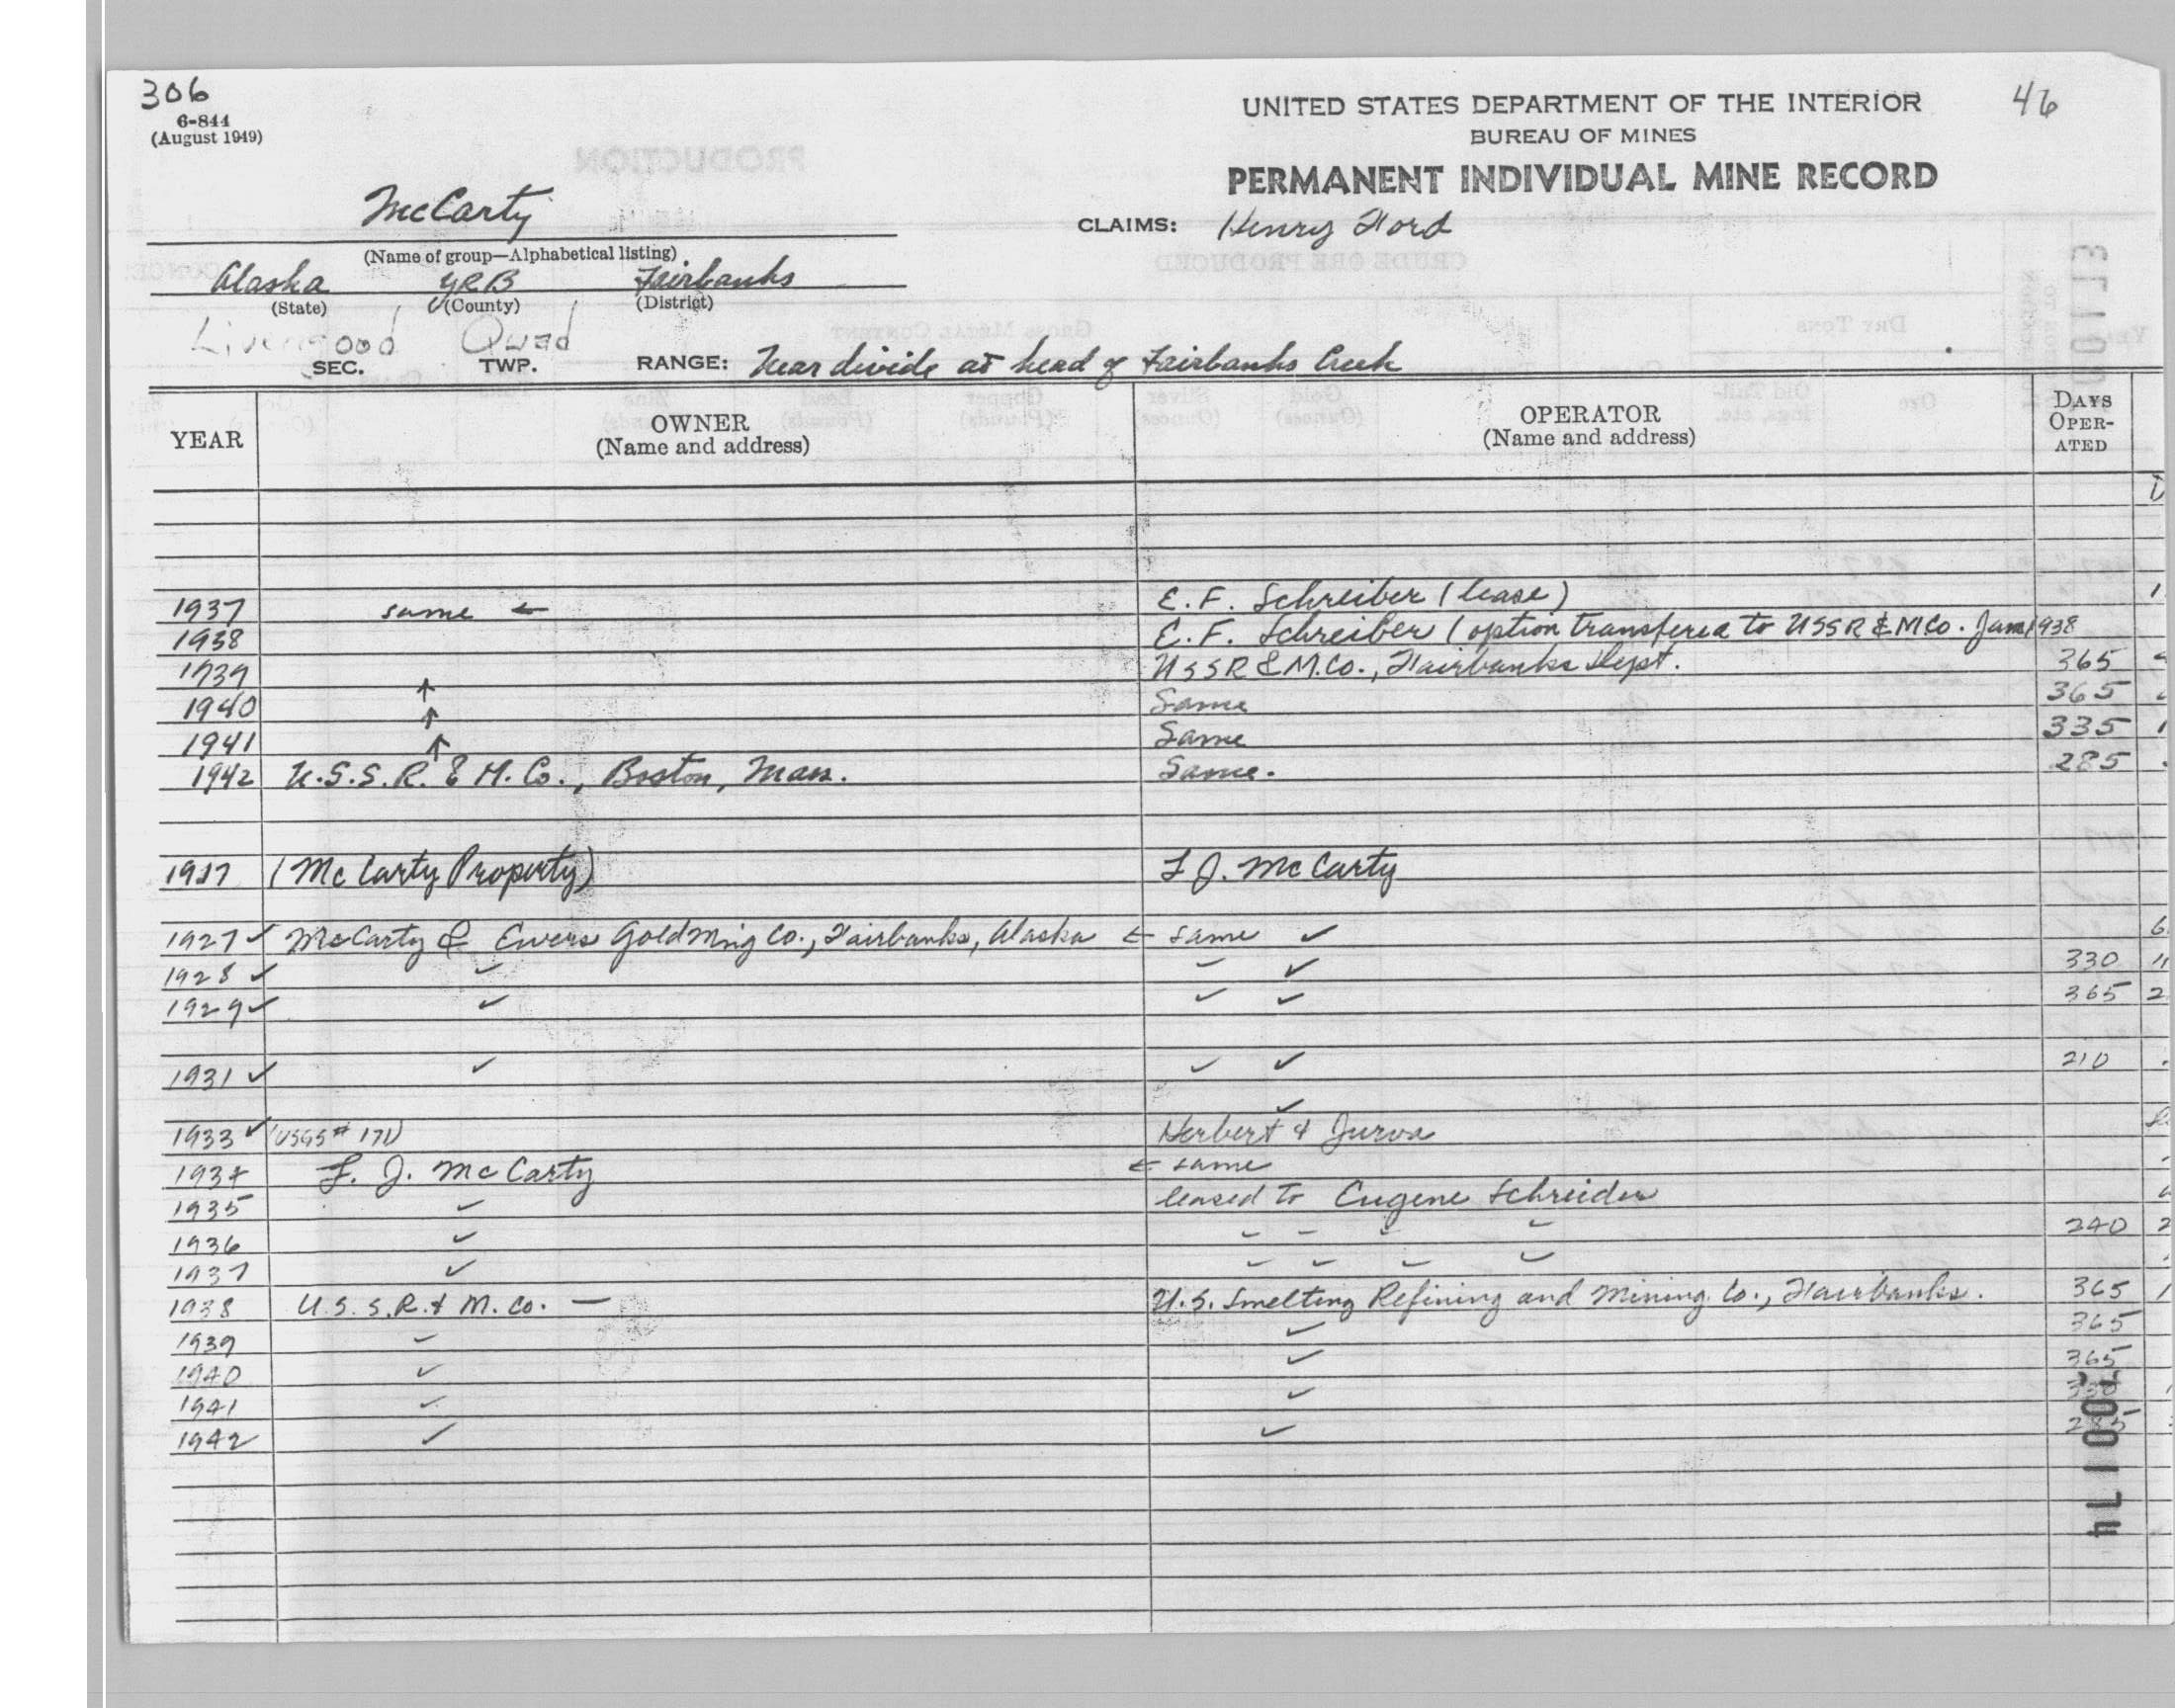 306
6-844
(August 1949)
UNITED STATES DEPARTMENT OF THE INTERIOR
46
BUREAU OF MINES
PERMANENT INDIVIDUAL MINE RECORD
McCarty
CLAIMS: Henry Ford
(Name of group—Alphabetical listing)
Alaska YRB Fairbanks
(State) (County) (District)
Livengood Quad
SEC. TWP. RANGE: Near divide at head of Fairbanks Creek
YEAR OWNER (Name and address) OPERATOR (Name and address) DAYS OPER-ATED
1937 same ← E. F. Schreiber (lease)
1938 E. F. Schreiber (option transfered to USSR & M Co. Jan 1938
1939 ↑ USSR & M. Co., Fairbanks Dept. 365
1940 ↑ Same 365
1941 ↑ Same 335
1942 U.S.S.R. & M. Co., Boston, Mass. Same. 285
(McCarty Property) L J. McCarty
1927 ✓ McCarty & Ewers Gold Mng Co., Fairbanks, Alaska ← same ✓
1928 ✓ ✓ ✓ ✓ 330
1929 ✓ ✓ ✓ ✓ 365
1931 ✓ ✓ ✓ ✓ 210
✓
1933 ✓ (USGS # 171) Herbert & Jurva
1934 L. J. McCarty ← same
1935 ✓ leased to Eugene Schreider
1936 ✓ 240
1937 ✓
1938 U.S.S.R. & M. Co. — U.S. Smelting Refining and Mining Co., Fairbanks. 365
1939 ✓ ✓ 365
1940 ✓ ✓ 365
1941 ✓ ✓ 330
1942 ✓ ✓ 285